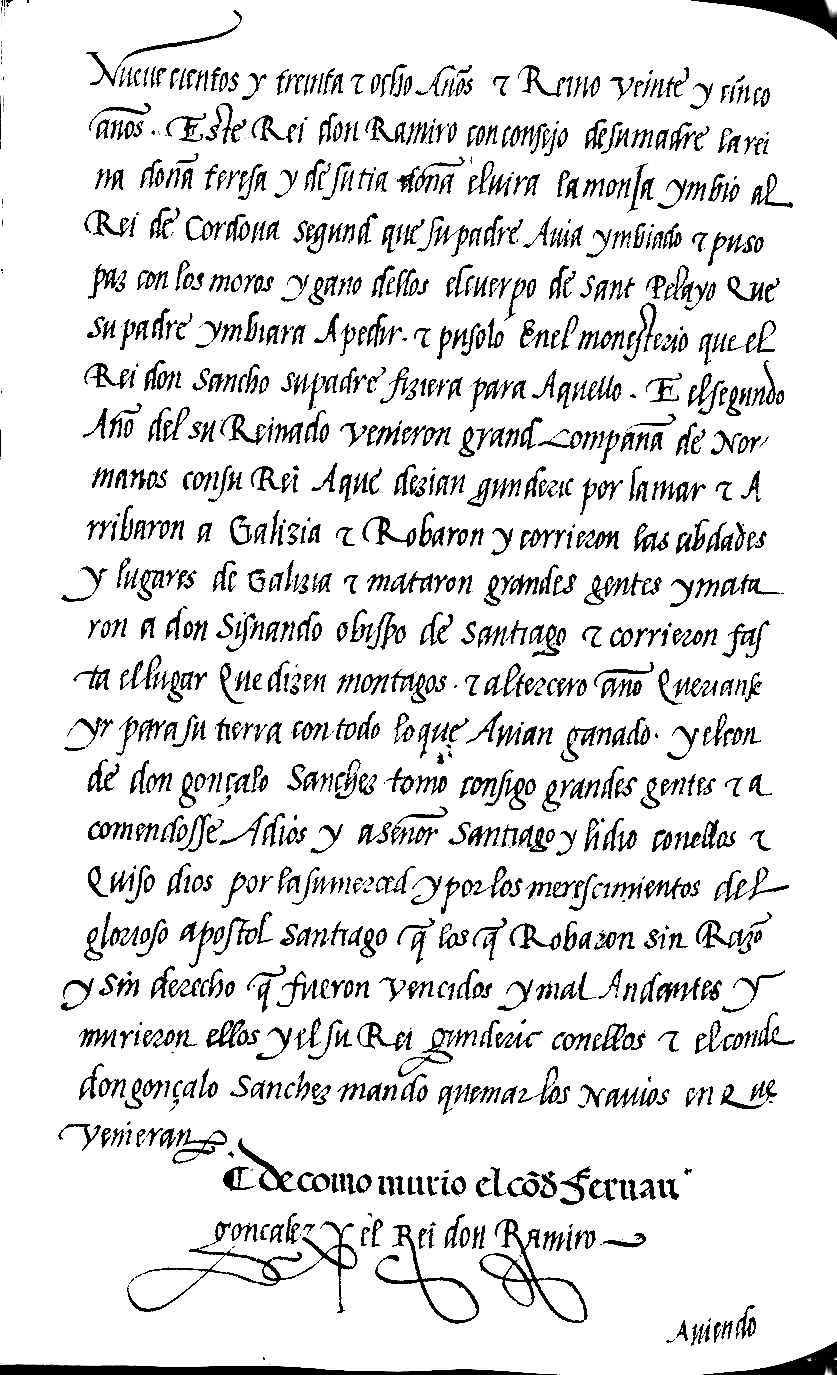 Nueue cientos y treinta τ ocho Años τ Reino veinte y cinco
años . Este Rei don Ramiro con consejo de su madre la rei
na doña teresa y de su tia doña eluira la monja ymbio al
Rei de Cordoua segund que su padre Auia ymbiado τ puso
paz con los moros y gano dellos el cuerpo de sant Pelayo Que
su padre ymbiara A pedir . τ pusolo En el monesterio que el
Rei don Sancho su padre fiziera para Aquello . E el segundo
Año del su Reinado venieron grand Compaña de Nor-
manos con su Rei A que dezian gunderic por la mar τ A
rribaron a Galizia τ Robaron y corrieron las cibdades
y lugares de Galizia τ mataron grandes gentes y mata
ron a don Sisnando obispo de Santiago τ corrieron fas
ta el lugar Que dizen montagos . τ al tercero año Querianse
yr para su tierra con todo lo que Auian ganado . y el con
de don gonçalo Sanchez tomo consigo grandes gentes τ a
comendosse A dios y a señor Santiago y lidio con ellos τ
Quiso dios por la su merced y por los merescimientos del
glorioso apostol Santiago q̃ los q̃ Robaron sin Razõ
y sin derecho q̃ fueron vencidos y mal Andantes y
murieron ellos y el su Rei gunderic con ellos τ el conde
don gonçalo Sanchez mando quemar los Nauios en Que
venieran
¶ de como murio el cõd Fernan
gonçalez y el Rei don Ramiro
Auiendo